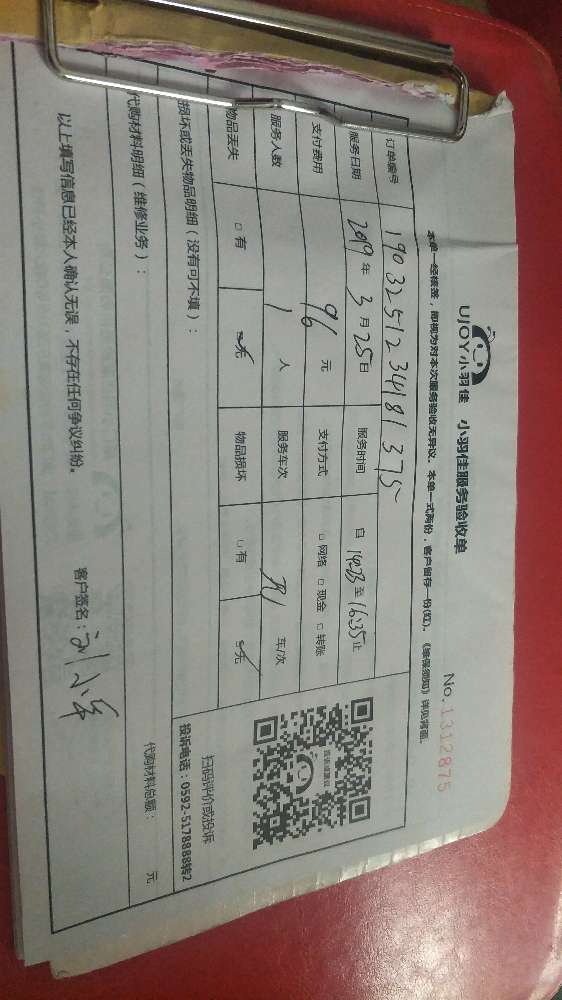 UJOY小羽佳 小羽佳服务验收单
No.1312875
本单一经核签，即视为对本次服务验收无异议。本单一式两份，客户留存一份(红)。《维保须知》详见背面。
订单编号 1903251234181375
服务日期 2019年3月25日 服务时间 自 14:23 至 16:35 止
支付费用 96 元 支付方式 □网络 □现金 □转账
服务人数 1 人 服务车次 车/次
物品丢失 □有 □无 物品损坏 □有 □无
扫码评价或投诉
投诉电话：0592-5178888转2
损坏或丢失物品明细（没有可不填）：
代购材料明细（维修业务）：
代购材料总额： 元
以上填写信息已经本人确认无误，不存在任何争议纠纷。
客户签名：